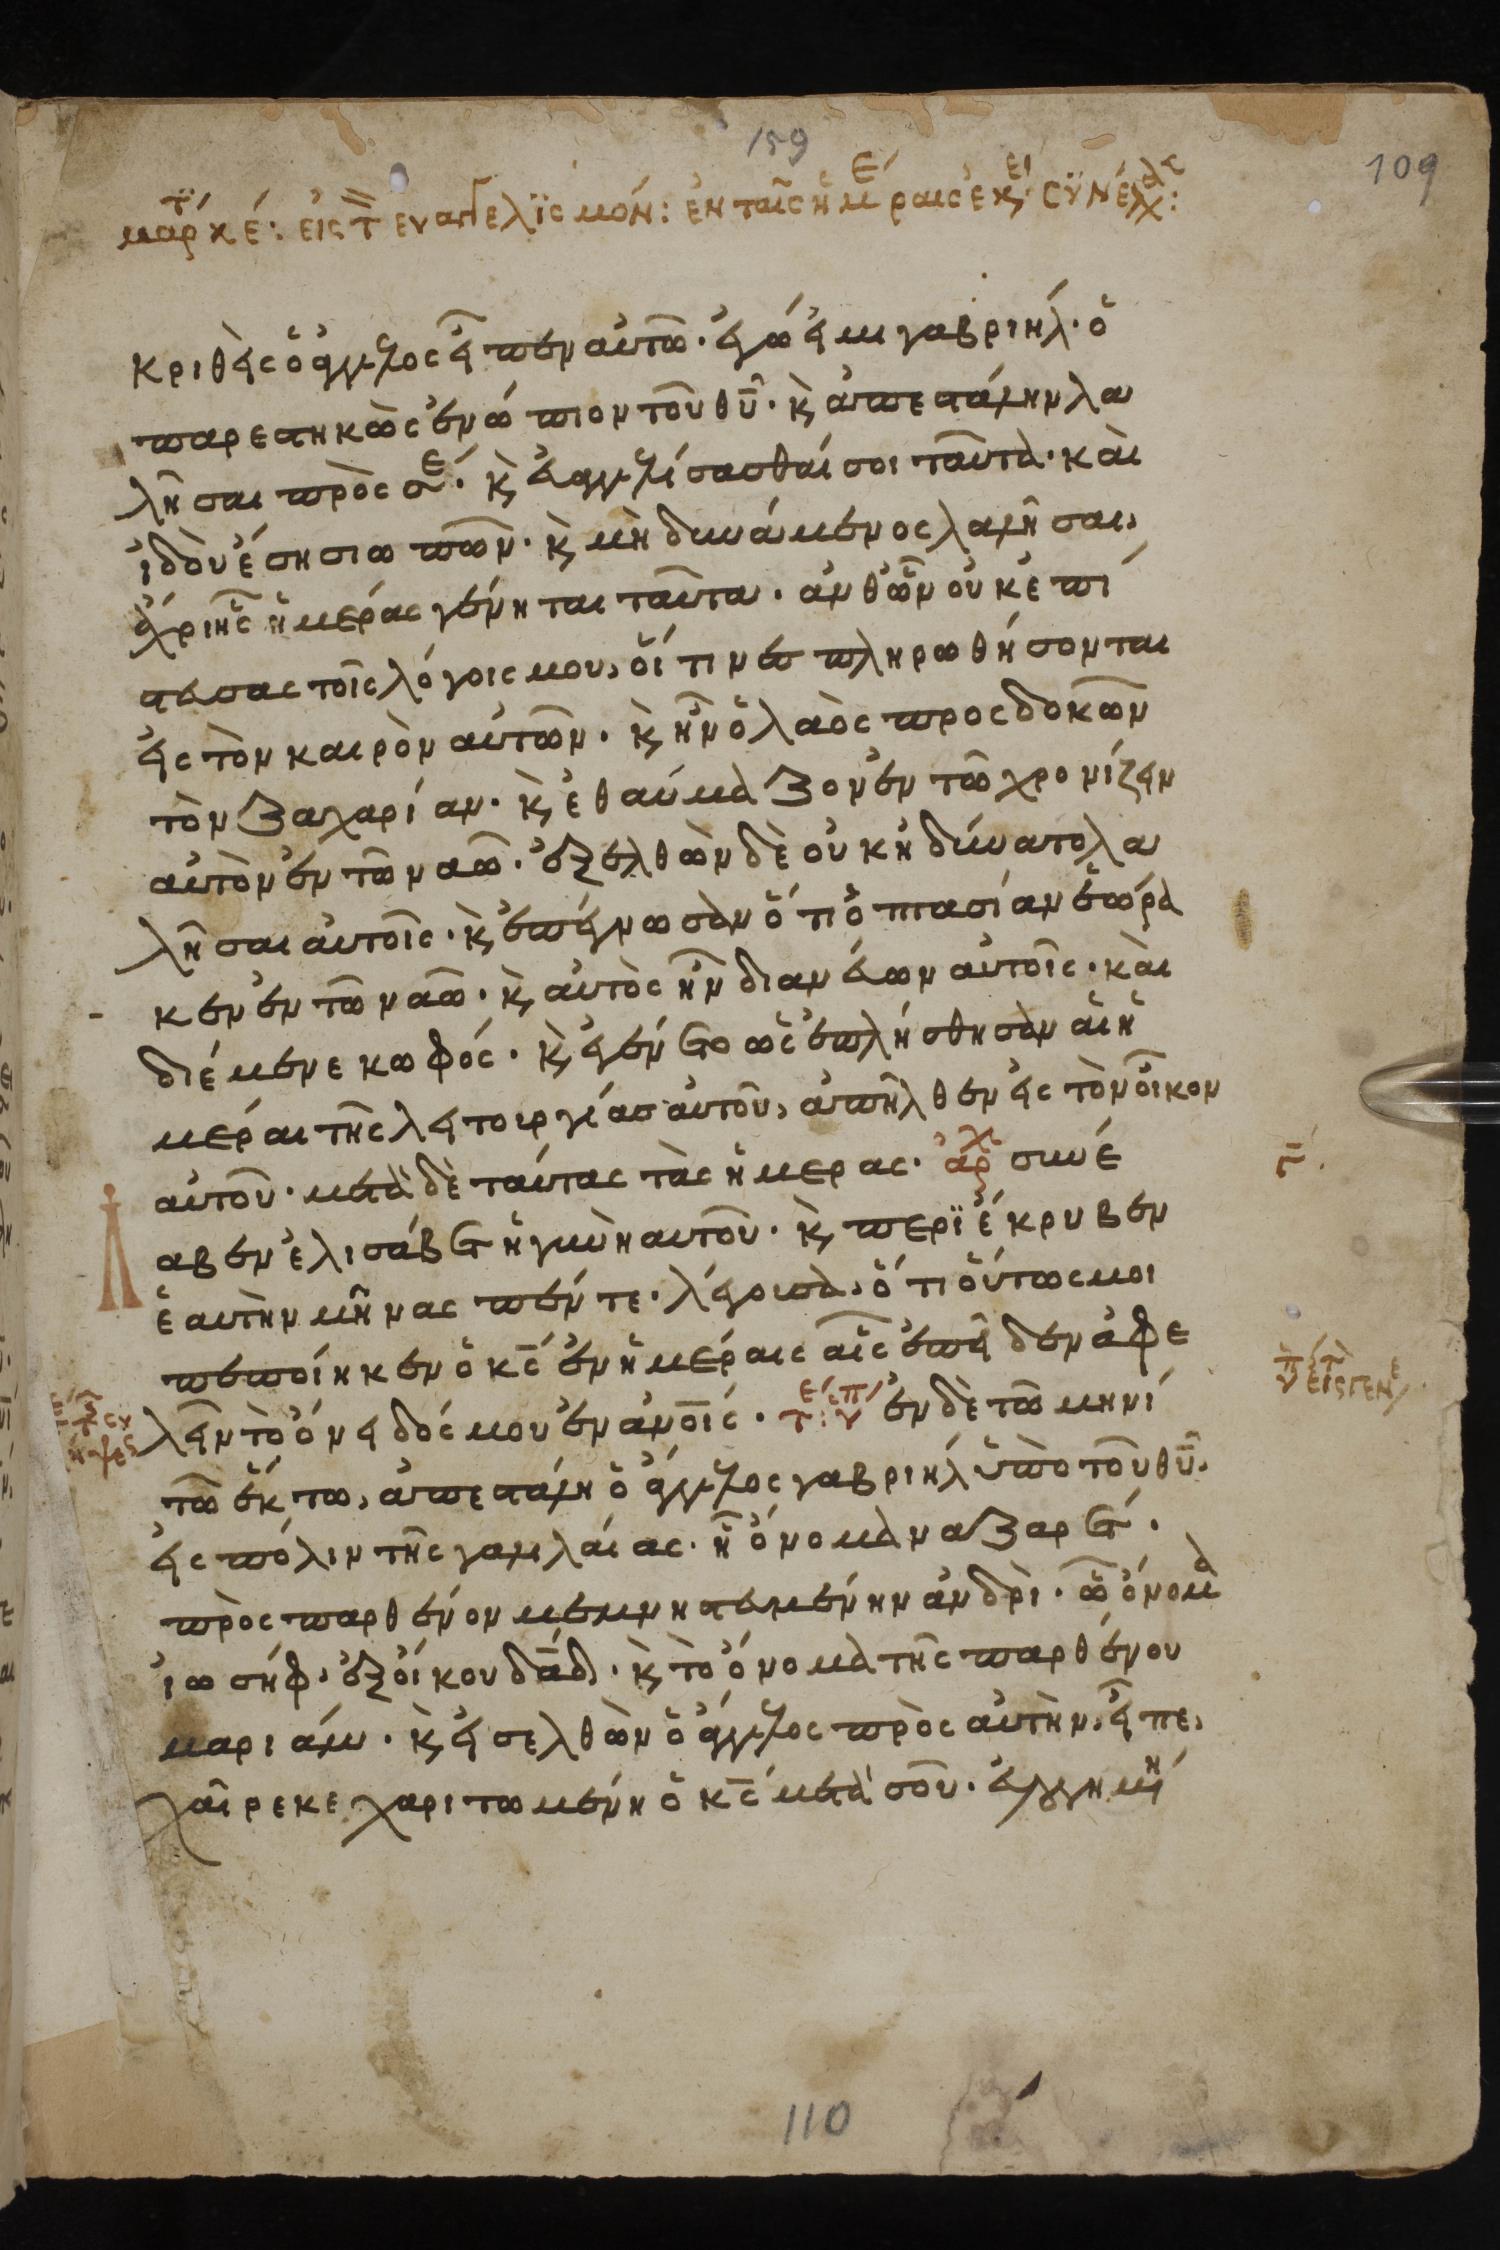 159
109
μαρτ κέ: εἰς τ ευαγγελϊσμόν: ἐν ταῖς ἡμέραις ἐκει σϋνέλ
κριθεὶς ὁ ἄγγελος εἶπεν αὐτῶ· ἐγώ εἰμι γαβριήλ· ὁ
παρεστηκὼς ἐνώπιον τοῦ θῦ· κ ἀπεστάλην λα
λῆσαι πρὸς σέ· κ εὐαγγελίσασθαί σοι ταῦτὰ· καὶ
ἰδοὺ ἔση σιωπῶν· κ μὴ δυνάμενος λαλῆσαι,
ἄχρι ἧς ἡμέρας γένηται ταῦτα· ἀνθ ὧν οὐκ ἐπί
στευσας τοῖς λόγοις μου, οἵτινες πληρωθήσονται
εἰς τὸν καιρὸν αὐτῶν· κ ἦν ὁ λαὸς προσδοκῶν
τὸν ζαχαρίαν· κ ἐθαύμαζον ἐν τῶ χρονίζειν
αὐτὸν ἐν τῶ ναῶ· ἐξελθὼν δὲ οὐκ ἠδύνατο λα
λῆσαι αὐτοῖς· κ ἐπέγνωσὰν ὅτι ὀπτασίαν ἑώρα
κεν ἐν τῶ ναῶ· κ αὐτὸς ἦν διανεύων αὐτοῖς· καὶ
διέμενε κωφός· κ ἐγένετο ὡς ἐπλήσθησὰν αἱ ἡ
μέραι τῆς λειτουργίας αὐτοῦ, ἀπῆλθεν εἰς τὸν οἶκον
αὐτοῦ· μετὰ δὲ ταύτας τὰς ἡμέρας· ἀρχ συνέ
γ
λαβεν ἐλισάβετ ἡ γυνὴ αὐτοῦ· κ περιέκρυβεν
ἑαυτὴν μῆνας πέντε· λέγουσὰ, ὅτι οὕτως μοι
πεποίηκεν ὁ κς ἐν ἡμέραις αἷς ἐπεῖδεν ἀφε
λεῖν τὸ ὄνειδός μου ἐν ἀνοις· ἐν δὲ τῶ μηνί
τῶ ἕκτω, ἀπεστάλη ὁ ἄγγελος γαβριήλ ὑπὸ τοῦ θῦ·
εἰς πόλιν τῆς γαλιλαίας· ἧ ὄνομὰ ναζαρέτ·
πρὸς παρθένον μεμνηστευμένην ἀνδρὶ· ὧ ὄνομα
ἰωσήφ· ἐξ οἴκου δαδ· κ τὸ ὄνομὰ τῆς παρθένου
μαριάμ· κ εἰσελθὼν ὁ ἄγγελος πρὸς αὐτὴν, εἶπε,
χαῖρε κεχαριτωμένη ὁ κς μετὰ σοῦ· εὐλογημένη
110